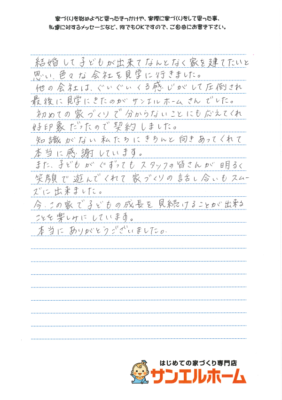 家づくりを始めようと思ったきっかけや、実際に家づくりをして思った事、
私達に対するメッセージなど、何でもOKですので、ご自由にお書き下さい。
結婚して子どもが出来てなんとなく家を建てたいと
思い、色々な会社を見学に行きました。
他の会社は、ぐいぐいくる感じがして圧倒され
最後に見学にきたのがサンエルホームさんでした。
初めての家づくりで分からないことにも応えてくれ
好印象だったので契約しました。
知識がない私たちにきちんと向きあってくれて
本当に感謝しています。
また、子どもがぐずってもスタッフの皆さんが明るく
笑顔で遊んでくれて家づくりの話し合いもスムー
ズに出来ました。
今、この家で子どもの成長を見続けることが出来る
ことを楽しみにしています。
本当にありがとうございました。
はじめての家づくり専門店
サンエルホーム